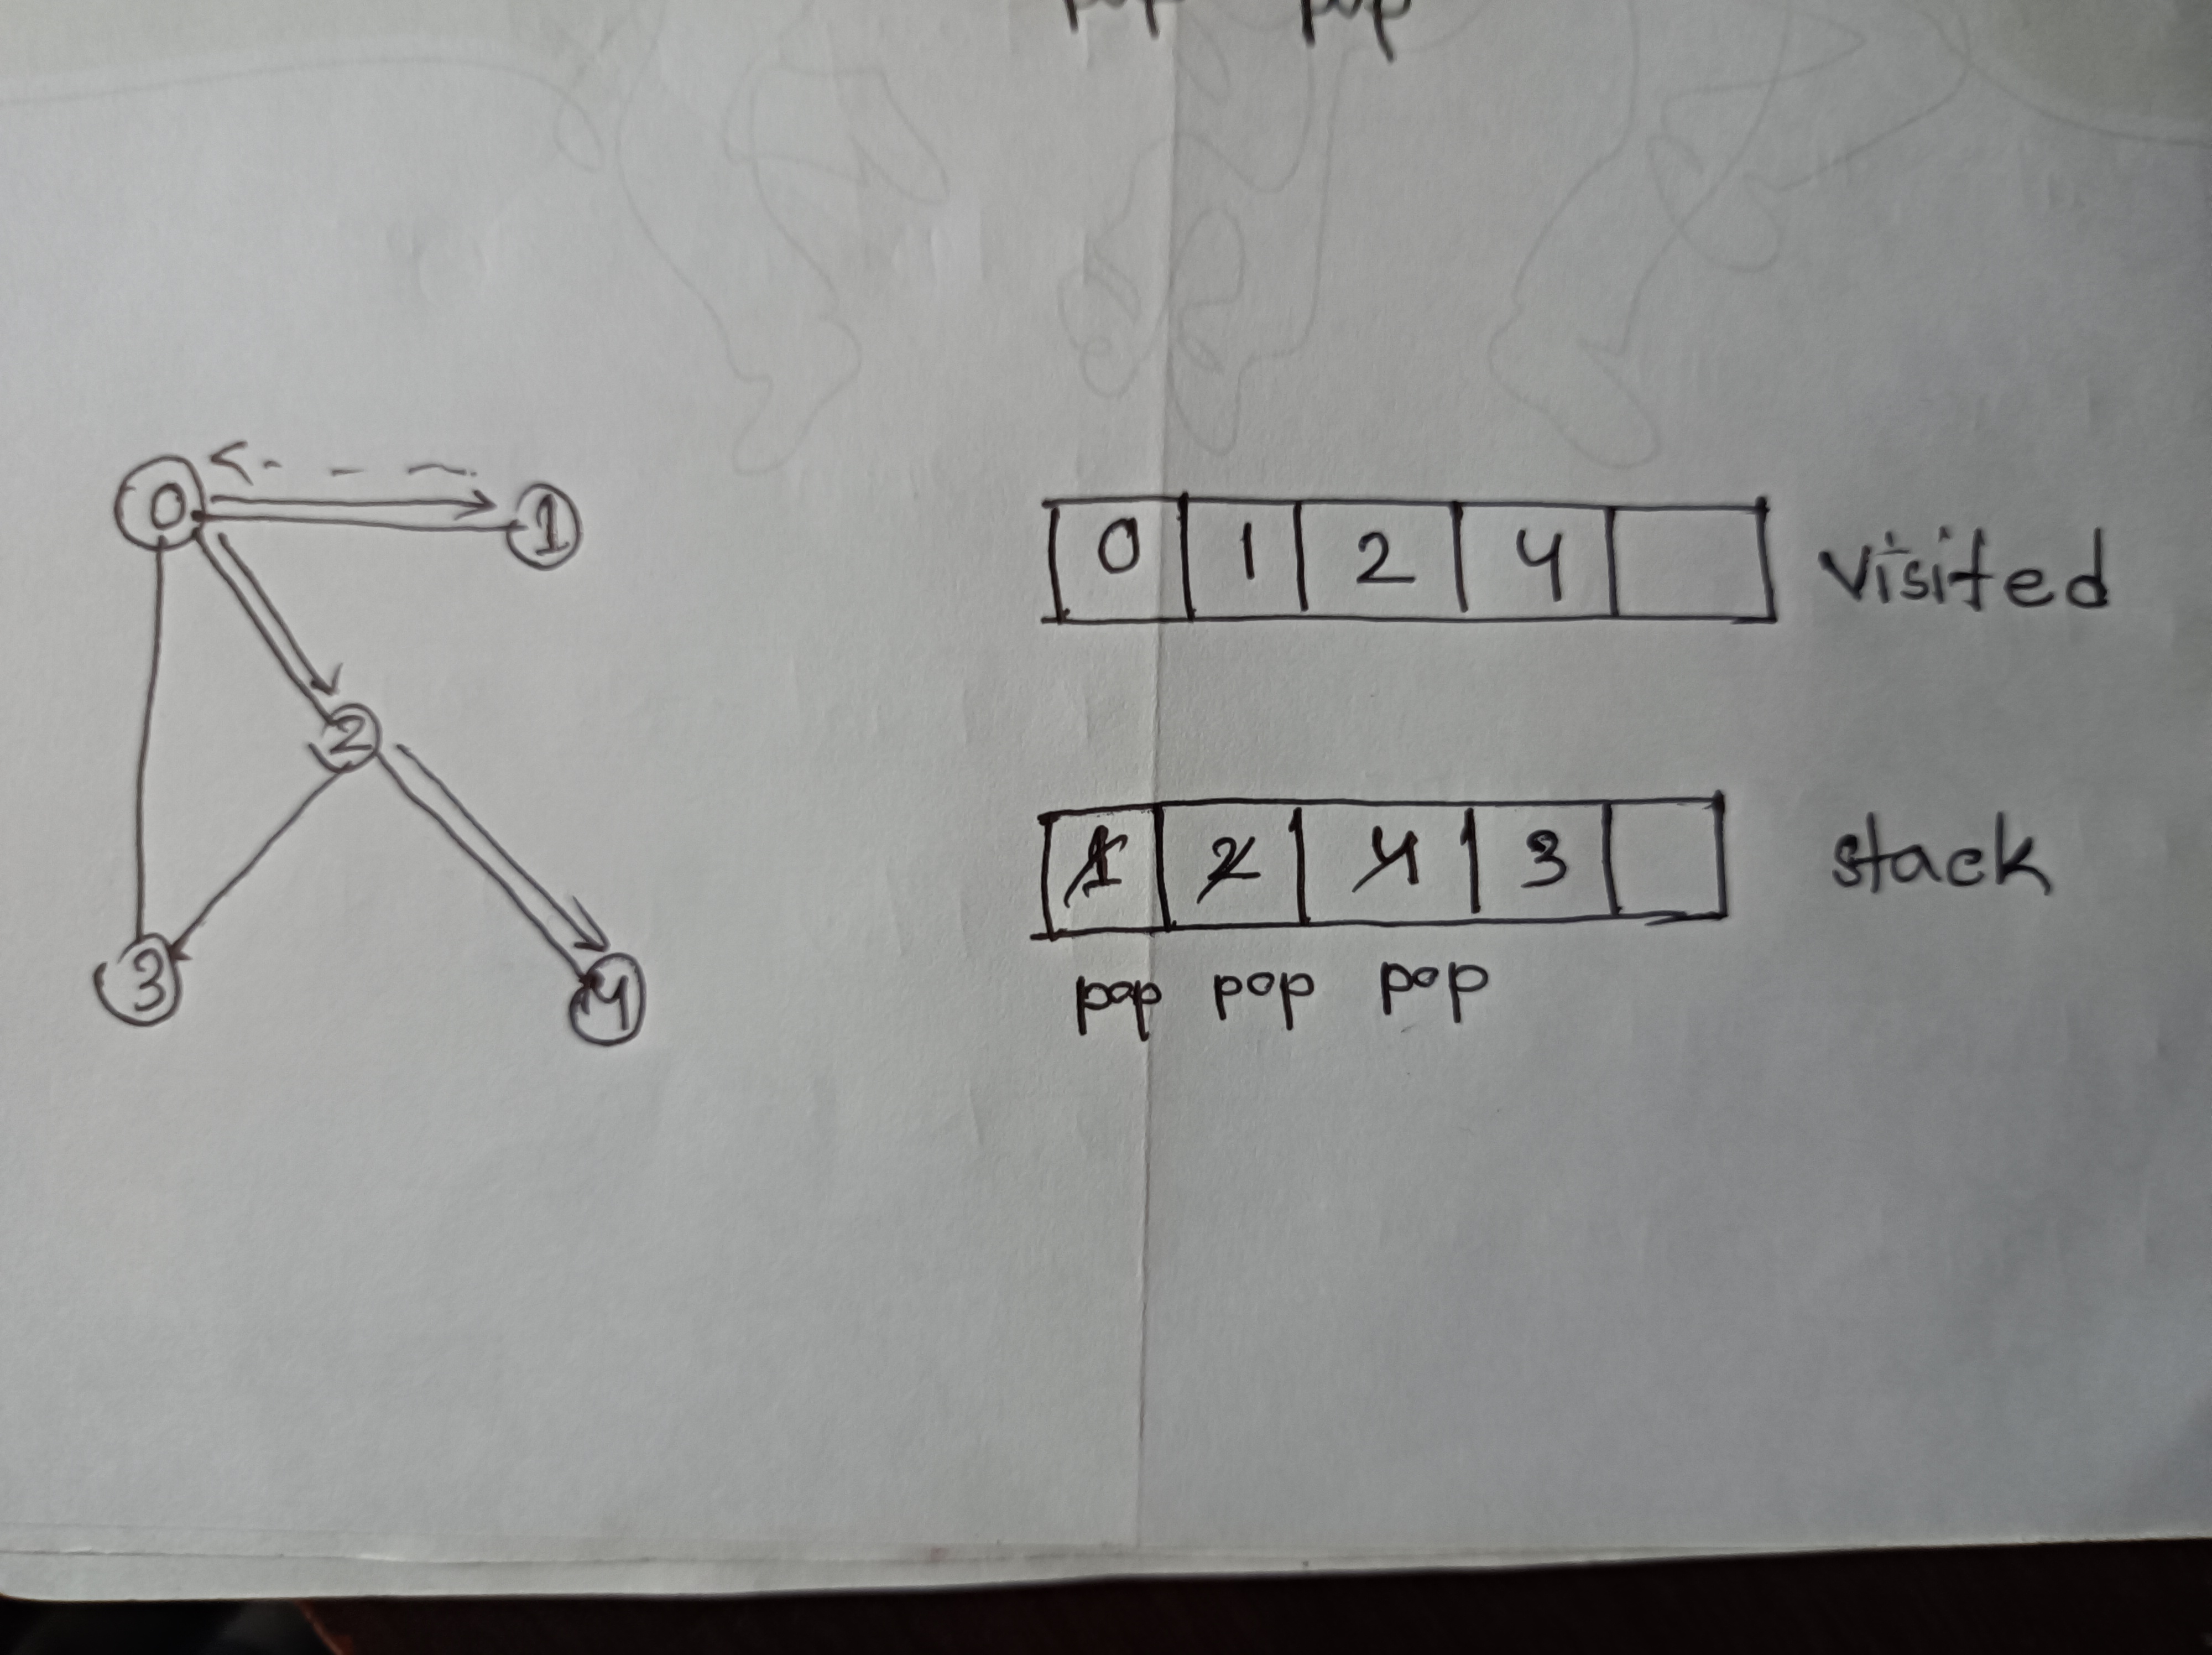 pop pop
0 1
2
3 4
0 1 2 4 visited
1 2 4 3 stack
pop pop pop